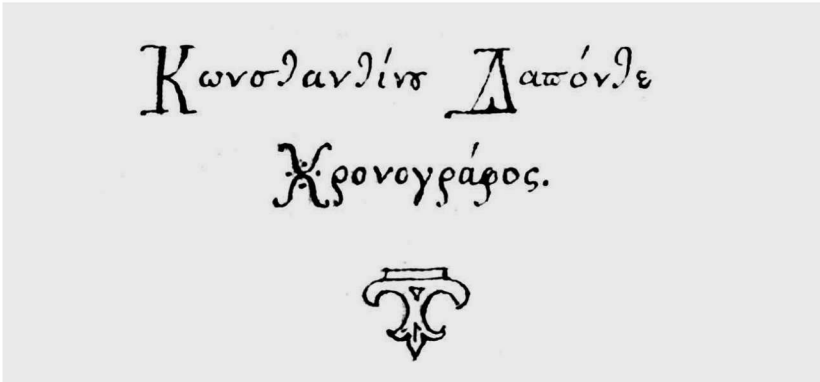 Κωνσταντίνου Δαπόντε
Χρονογράφος.